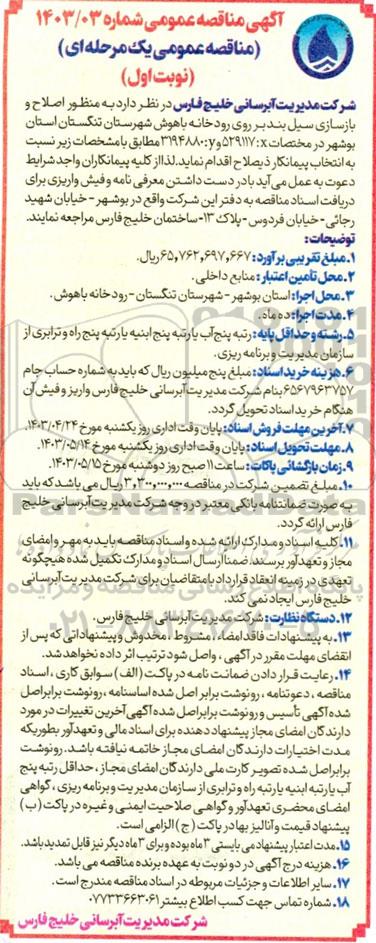 آگهی مناقصه عمومی شماره ۱۴۰۳/۰۳
(مناقصه عمومی یک مرحله ای)
(نوبت اول)
شرکت مدیریت آبرسانی خلیج فارس در نظر دارد به منظور اصلاح و
بازسازی سیل بندبر روی رودخانه باهوش شهرستان تنگستان استان
بوشهر در مختصات x:۵۲۹۱۱۷ و y:۳۱۹۴۸۸۰ مطابق با مشخصات زیر نسبت
به انتخاب پیمانکار ذیصلاح اقدام نماید. لذا از کلیه پیمانکاران واجد شرایط
دعوت به عمل می آید با در دست داشتن معرفی نامه و فیش واریزی برای
دریافت اسناد مناقصه به دفتر این شرکت واقع در بوشهر - خیابان شهید
رجائی - خیابان فردوس - پلاک ۱۳- ساختمان خلیج فارس مراجعه نمایند.
توضیحات:
۱. مبلغ تقریبی برآورد: ۶۵,۷۶۲,۶۹۷,۶۶۷ ریال.
۲. محل تأمین اعتبار: منابع داخلی.
۳. محل اجرا: استان بوشهر - شهرستان تنگستان - رودخانه باهوش.
۴. مدت اجرا: ده ماه.
۵. رشته و حداقل پایه: رتبه پنج آب یا رتبه پنج ابنیه یا رتبه پنج راه و ترابری از
سازمان مدیریت و برنامه ریزی.
۶. هزینه خرید اسناد: مبلغ پنج میلیون ریال که باید به شماره حساب جام
۶۵۶۷۹۶۳۷۵۷ بنام شرکت مدیریت آبرسانی خلیج فارس واریز و فیش آن
هنگام خرید اسناد تحویل گردد.
۷. آخرین مهلت فروش اسناد: پایان وقت اداری روز یکشنبه مورخ ۱۴۰۳/۰۴/۲۴.
۸. مهلت تحویل اسناد: پایان وقت اداری روز یکشنبه مورخ ۱۴۰۳/۰۵/۱۴.
۹. زمان بازگشائی پاکات: ساعت ۱۱ صبح روز دوشنبه مورخ ۱۴۰۳/۰۵/۱۵.
۱۰. مبلغ تضمین شرکت در مناقصه ۳,۳۰۰,۰۰۰,۰۰۰ ریال می باشد که باید
به صورت ضمانتنامه بانکی معتبر در وجه شرکت مدیریت آبرسانی خلیج
فارس ارائه گردد.
۱۱. کلیه اسناد و مدارک ارائه شده و اسناد مناقصه باید به مهر و امضای
مجاز و تعهدآور برسند. ضمنا ارسال اسناد و مدارک تکمیل شده هیچگونه
تعهدی در زمینه انعقاد قرارداد با متقاضیان برای شرکت مدیریت آبرسانی
خلیج فارس ایجاد نمی کند.
۱۲. دستگاه نظارت: شرکت مدیریت آبرسانی خلیج فارس.
۱۳. به پیشنهادات فاقد امضاء، مشروط، مخدوش و پیشنهاداتی که پس از
انقضای مهلت مقرر در آگهی، واصل شود ترتیب اثر داده نخواهد شد.
۱۴. رعایت قرار دادن ضمانت نامه در پاکت (الف) سوابق کاری، اسناد
مناقصه، دعوتنامه، رونوشت برابر اصل شده اساسنامه، رونوشت برابر اصل
شده آگهی تأسیس و رونوشت برابر اصل شده آگهی آخرین تغییرات در مورد
دارندگان امضای مجاز پیشنهاد دهنده برای اسناد مالی و تعهدآور بطوریکه
مدت اختیارات دارندگان امضای مجاز خاتمه نیافته باشد. رونوشت
برابر اصل شده تصویر کارت ملی دارندگان امضای مجاز، حداقل رتبه پنج
آب یا رتبه ابنیه یا رتبه راه و ترابری از سازمان مدیریت و برنامه ریزی، گواهی
امضای محضری تعهدآور و گواهی صلاحیت ایمنی و غیره در پاکت (ب)
پیشنهاد قیمت و آنالیز بها در پاکت (ج) الزامی است.
۱۵. مدت اعتبار پیشنهاد می بایستی ۳ ماه بوده و برای ۳ ماه دیگر نیز قابل تمدید باشد.
۱۶. هزینه درج آگهی در دو نوبت به عهده برنده مناقصه می باشد.
۱۷. سایر اطلاعات و جزئیات مربوطه در اسناد مناقصه مندرج است.
۱۸. شماره تماس جهت کسب اطلاع بیشتر ۰۷۷۳۳۶۶۳۰۶۱
شرکت مدیریت آبرسانی خلیج فارس